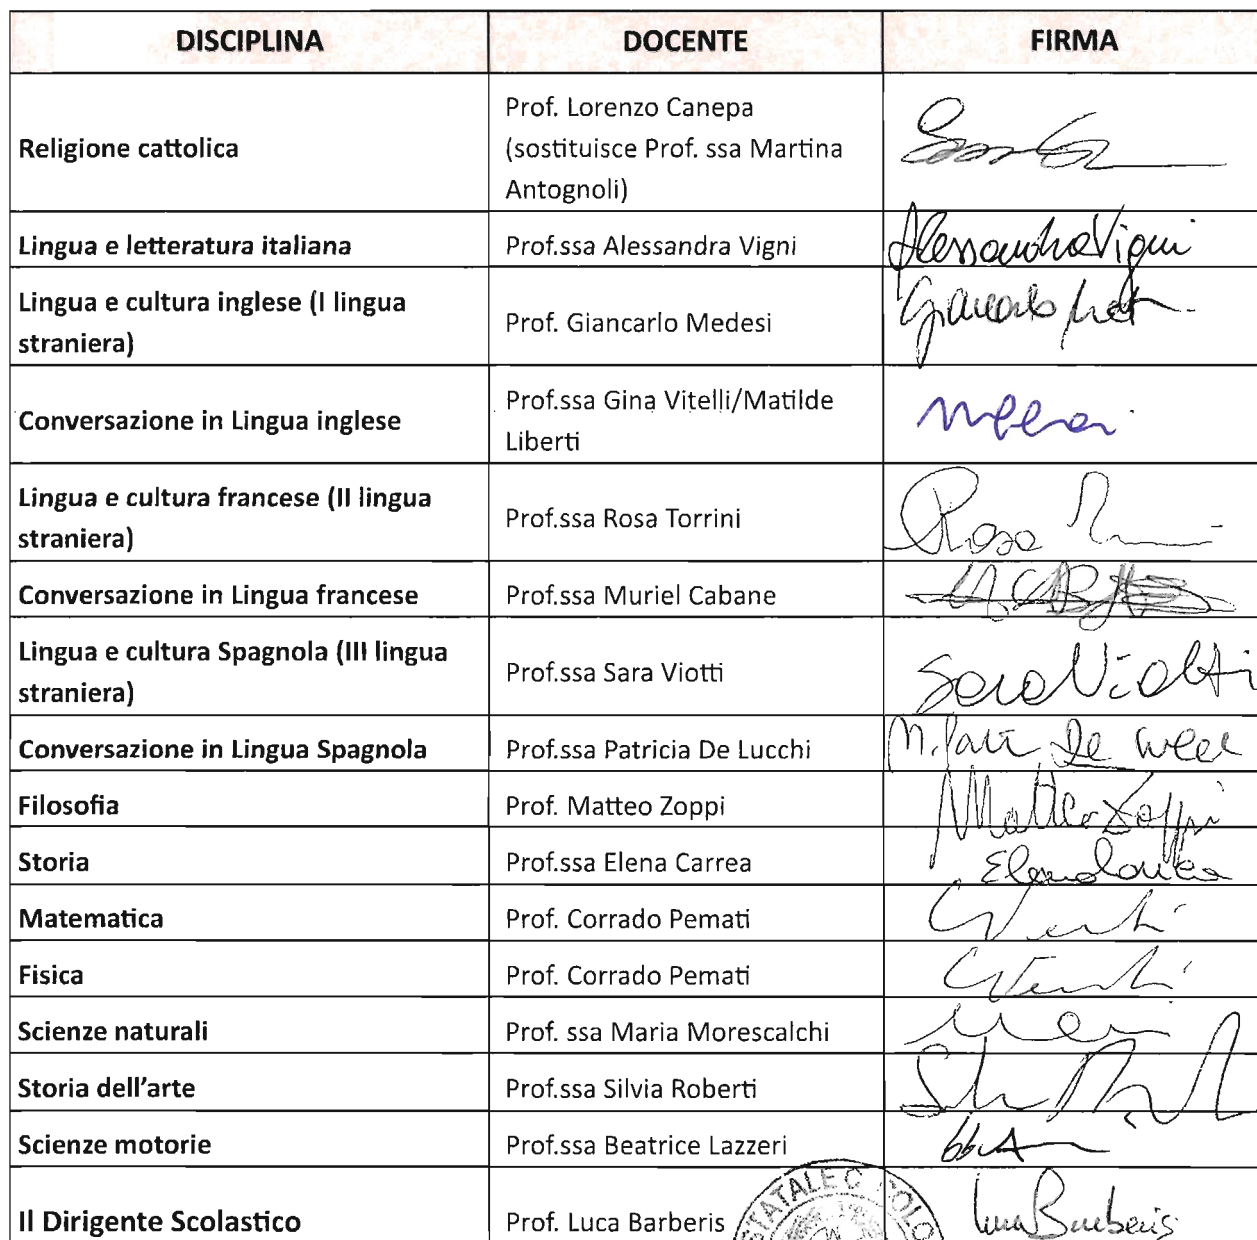 DISCIPLINA DOCENTE FIRMA
Religione cattolica
Prof. Lorenzo Canepa
(sostituisce Prof. ssa Martina
Antognoli)
Lingua e letteratura italiana Prof.ssa Alessandra Vigni Alessandra Vigni
Lingua e cultura inglese (I lingua
straniera)
Prof. Giancarlo Medesi Giancarlo
Conversazione in Lingua inglese
Prof.ssa Gina Vitelli/Matilde
Liberti
Lingua e cultura francese (II lingua
straniera)
Prof.ssa Rosa Torrini Rosa
Conversazione in Lingua francese Prof.ssa Muriel Cabane
Lingua e cultura Spagnola (III lingua
straniera)
Prof.ssa Sara Viotti Sara Viotti
Conversazione in Lingua Spagnola Prof.ssa Patricia De Lucchi
Filosofia Prof. Matteo Zoppi Matteo Zoppi
Storia Prof.ssa Elena Carrea Elena Carrea
Matematica Prof. Corrado Pemati
Fisica Prof. Corrado Pemati
Scienze naturali Prof. ssa Maria Morescalchi
Storia dell'arte Prof.ssa Silvia Roberti
Scienze motorie Prof.ssa Beatrice Lazzeri
Il Dirigente Scolastico Prof. Luca Barberis Luca Barberis